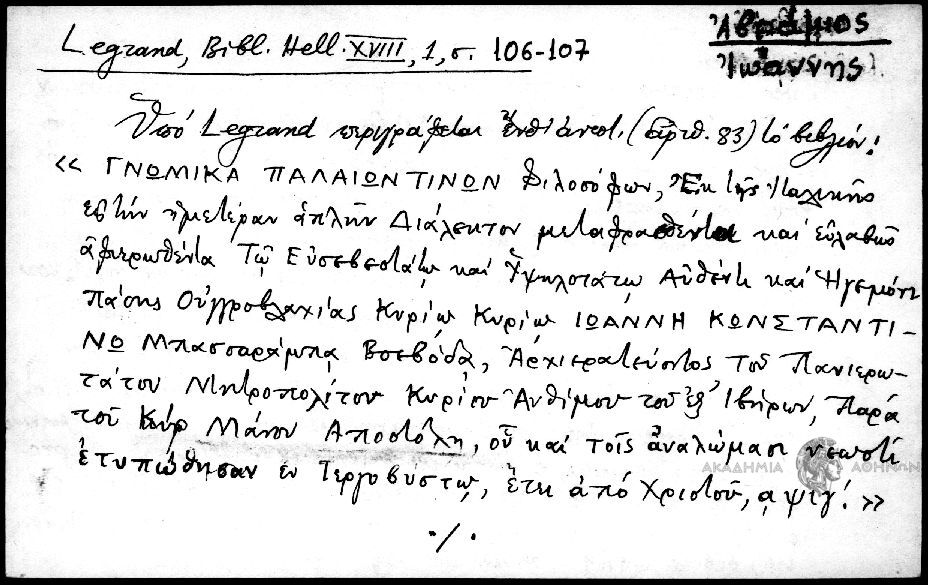 Legrand, Bibl. Hell. XVIII, 1, σ. 106-107
Ἀβράμιος
Ἰωάννης
Ὑπό Legrand περιγράφεται (ἀριθ. 83) τό βιβλίον:
« ΓΝΩΜΙΚΑ ΠΑΛΑΙΩΝ ΤΙΝΩΝ Φιλοσόφων, Ἐκ τῆς Ἰταλικῆς
εἰς τήν ἡμετέραν ἁπλῆν Διάλεκτον μεταφρασθέντα καί εὐλαβῶς
ἀφιερωθέντα Τῷ Εὐσεβεστάτῳ καί Ὑψηλοτάτῳ Αὐθέντῃ καί Ἡγεμόνι
πάσης Οὐγγροβλαχίας Κυρίῳ Κυρίῳ ΙΩΑΝΝΗ ΚΩΝΣΤΑΝΤΙ-
ΝΩ Μπασσαράμπᾳ Βοεβόδᾳ, Ἀρχιερατεύοντος τοῦ Πανιερω-
τάτου Μητροπολίτου Κυρίου Ἀνθίμου τοῦ ἐξ Ἰβήρων, Παρά
τοῦ Κύρ Μάνου Ἀποστόλη, οὗ καί τοῖς ἀναλώμασι νεωστί
ἐτυπώθησαν ἐν Τεργοβύστῳ, ἔτει ἀπό Χριστοῦ, αψιγ! »
./.
ΑΚΑΔΗΜΙΑ ΑΘΗΝΩΝ